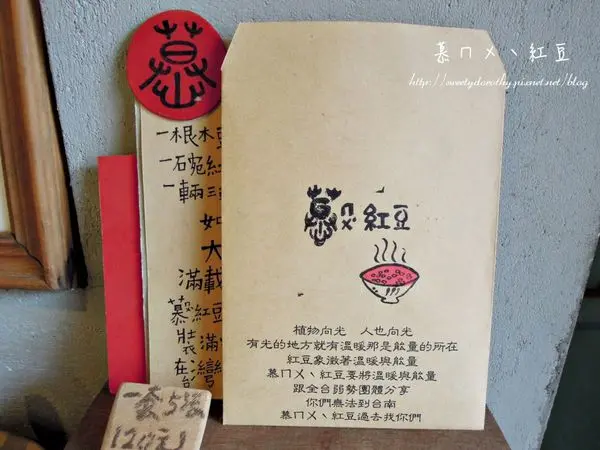 慕ㄇㄨˋ紅豆
http://sweetydorothy.pixnet.net/blog
慕
一根木
一碗紅
一輛三
如
大
滿載
慕紅豆
裝滿
在台灣
慕ㄇㄨˋ紅豆
植物向光　人也向光
有光的地方就有溫暖那是能量的所在
紅豆象徵著溫暖與能量
慕ㄇㄨˋ紅豆要將溫暖與能量
跟全台弱勢團體分享
你們無法到台南
慕ㄇㄨˋ紅豆過去找你們
一套5張
120元